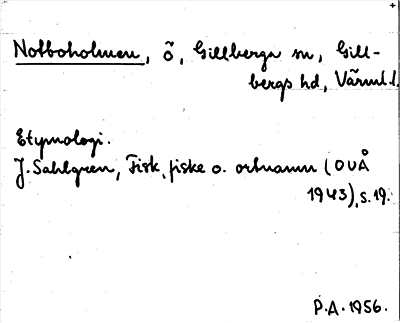 Notboholmen, ö, Gillberga sn, Gill-
bergs hd, Värml. l.
Etymologi.
J. Sahlgren, Fisk, fiske o. ortnamn (OUÅ
1943), s. 19.
P.A. 1956.